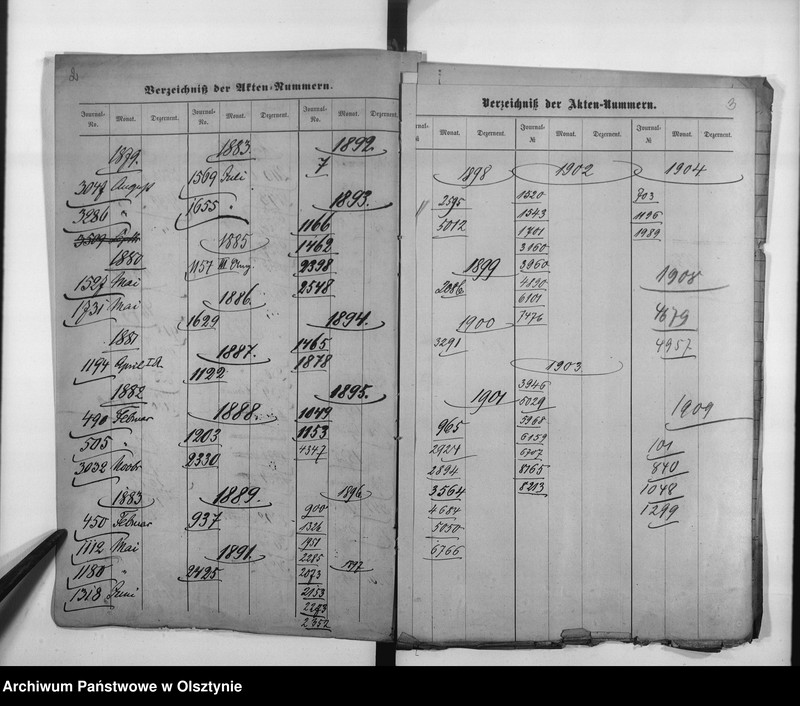 2
Verzeichniß der Akten-Nummern.
Journal-No. Monat. Dezernent. Journal-No. Monat. Dezernent. Journal-No. Monat. Dezernent.
1879.
3047 August
3286 "
3509 Septr.
1880
1527 Mai
1731 Mai
1881
1194 April
1882
490 Februar
505 "
3032 Novbr
1883
450 Februar
1112 Mai
1180 "
1318 Juni
1883.
1509 Juli
1655 "
1885
1157
1886.
1629
1887.
1122
1888.
1203
2330
1889.
937
1891.
2425
1892.
7
1893.
1166
1462
2398
2548
1894.
1465
1878
1895.
1049
1153
4347
1896.
900
1326
1951
2285
1897.
2073
2153
2293
2352
Verzeichniß der Akten-Nummern.
3
Journal-№ Monat. Dezernent. Journal-№ Monat. Dezernent. Journal-№ Monat. Dezernent.
1898
2595
5012
1899
2086
1900
3291
1901
965
2921
2894
3564
4684
5050
6766
1902
1520
1543
1701
3160
3960
4890
6101
7476
1903
3946
5029
5968
6159
6707
8165
8213
1904
703
1196
1989
1908
4679
4957
1909
101
840
1048
1299
Archiwum Państwowe w Olsztynie